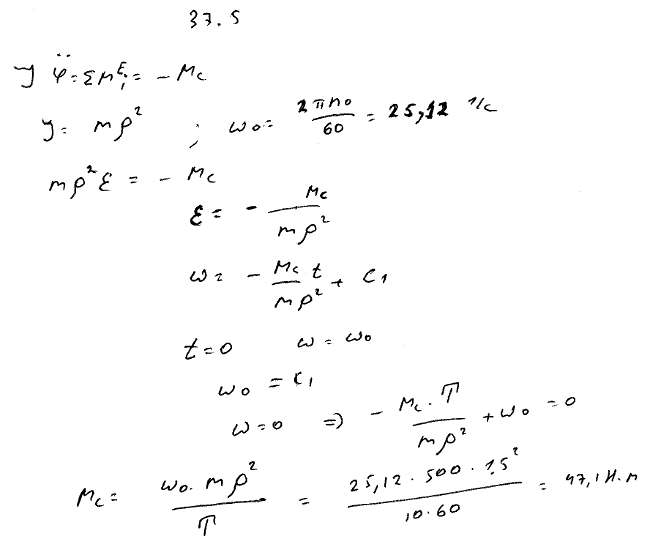 37.5
J φ̈ = Σ M_i^E = - Mc
J = mρ² ; ω₀ = 2πn₀/60 = 25,12 1/c
mρ²ε = - Mc
ε = - Mc/mρ²
ω = - Mc t/mρ² + C₁
t=0 ω = ω₀
ω₀ = C₁
ω=0 => - Mc · T/mρ² + ω₀ = 0
Mc = ω₀ · mρ²/T = 25,12 · 500 · 1,5²/10·60 = 47,1 Н.м